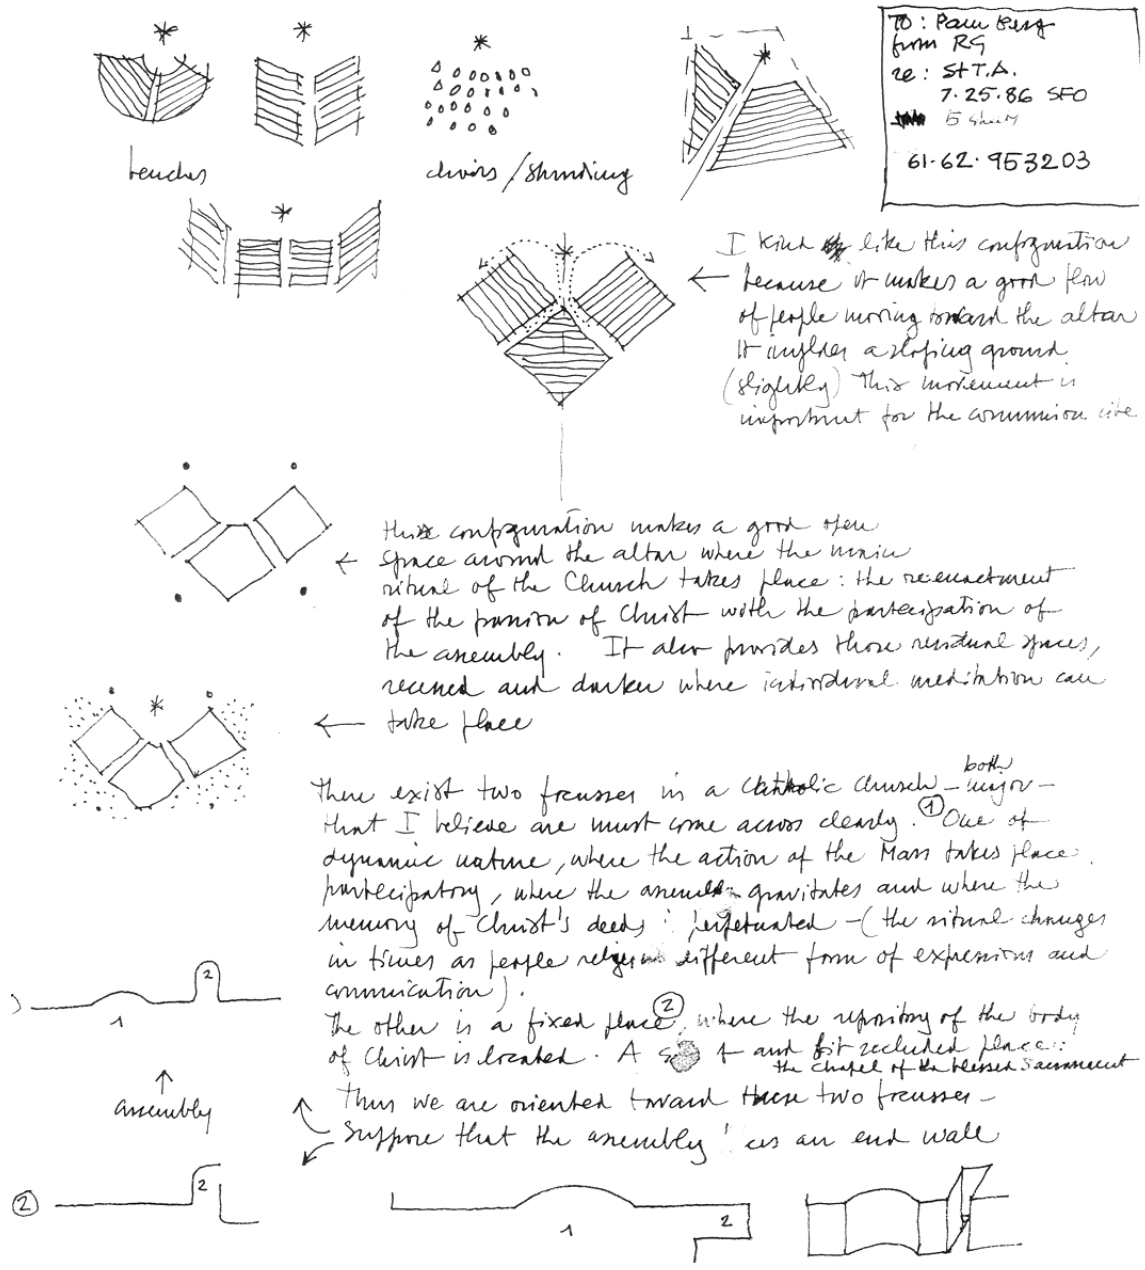 To: Pam Berg
from RG
re: St T.A.
7·25·86 SFO
5 sheets
61·62·953203
benches
chairs / standing
I kind like this configuration
← because it makes a good flow
of people moving toward the altar
It implies a sloping ground
(slightly) This movement is
important for the communion rite
this configuration makes a good open
← space around the altar where the main
ritual of the Church takes place: the reenactment
of the passion of Christ with the partecipation of
the assembly. It also provides those residual spaces,
recessed and darker where individual meditation can
← take place
There exist two focusses in a Catholic Church – both major –
that I believe are must come across clearly. ① One of
dynamic nature, where the action of the Mass takes place,
partecipatory, where the assembly gravitates and where the
memory of Christ's deeds perpetuated – (the ritual changes
in times as people different form of expressions and
commication).
The other is a fixed place ②, where the repository of the body
of Christ is located. A and bit secluded place:
the chapel of the blessed Sacrament
Thus we are oriented toward these two focusses –
Suppose that the assembly an end wall
1
2
assembly
②
2
1
2